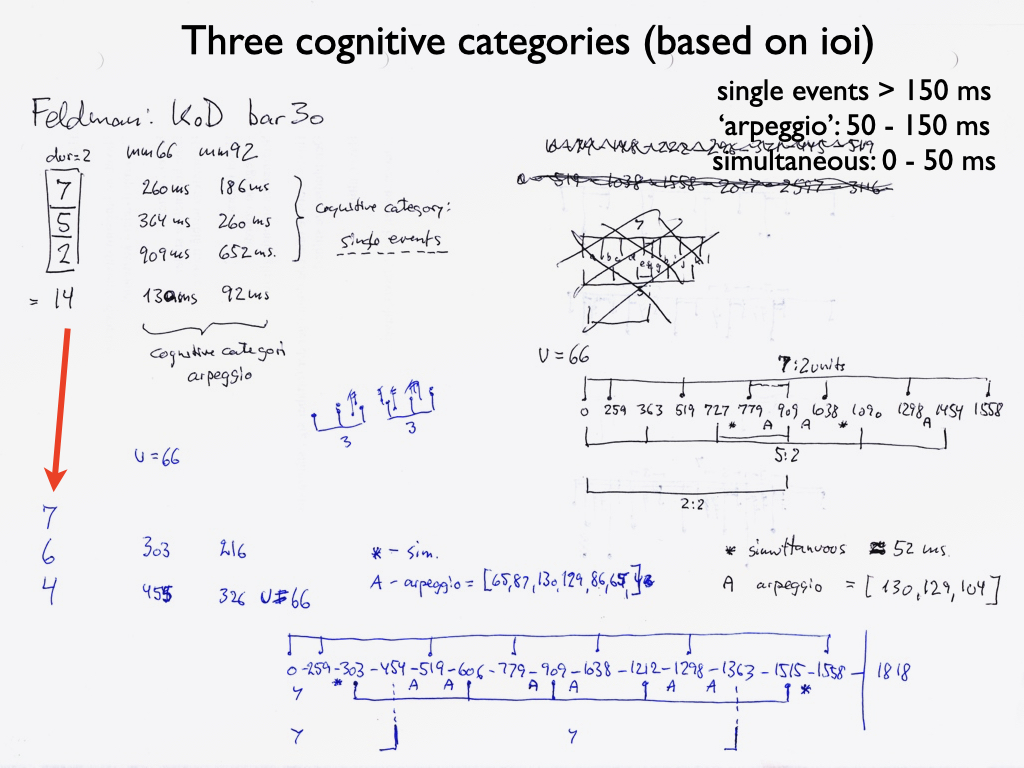 Three cognitive categories (based on ioi)
single events > 150 ms
'arpeggio': 50 - 150 ms
simultaneous: 0 - 50 ms
Feldman: KoD bar 30
dur=2 mm66 mm92
7 260ms 186ms
5 364 ms 260 ms
2 909ms 652ms.
cognitive category:
single events
= 14 130ms 92ms
cognitive categori
arpeggio
3 3
U=66
7
6 303 216
4 455 326 U=66
0 - 519 - 1038 - 1558 - 2077 - 2597 - 3116
7
U=66
7:2 units
0 259 363 519 727 779 909 1038 1090 1298 1454 1558
* A A * A
5:2
2:2
* - sim.
A - arpeggio = [65,87,130,129,86,65,
* simultanuous ≈ 52 ms.
A arpeggio = [130,129,104]
0 -259 -303 -454 -519 -606 -779 -909 -1038 -1212 -1298 -1363 -1515 -1558 - 1818
* A A A A A A *